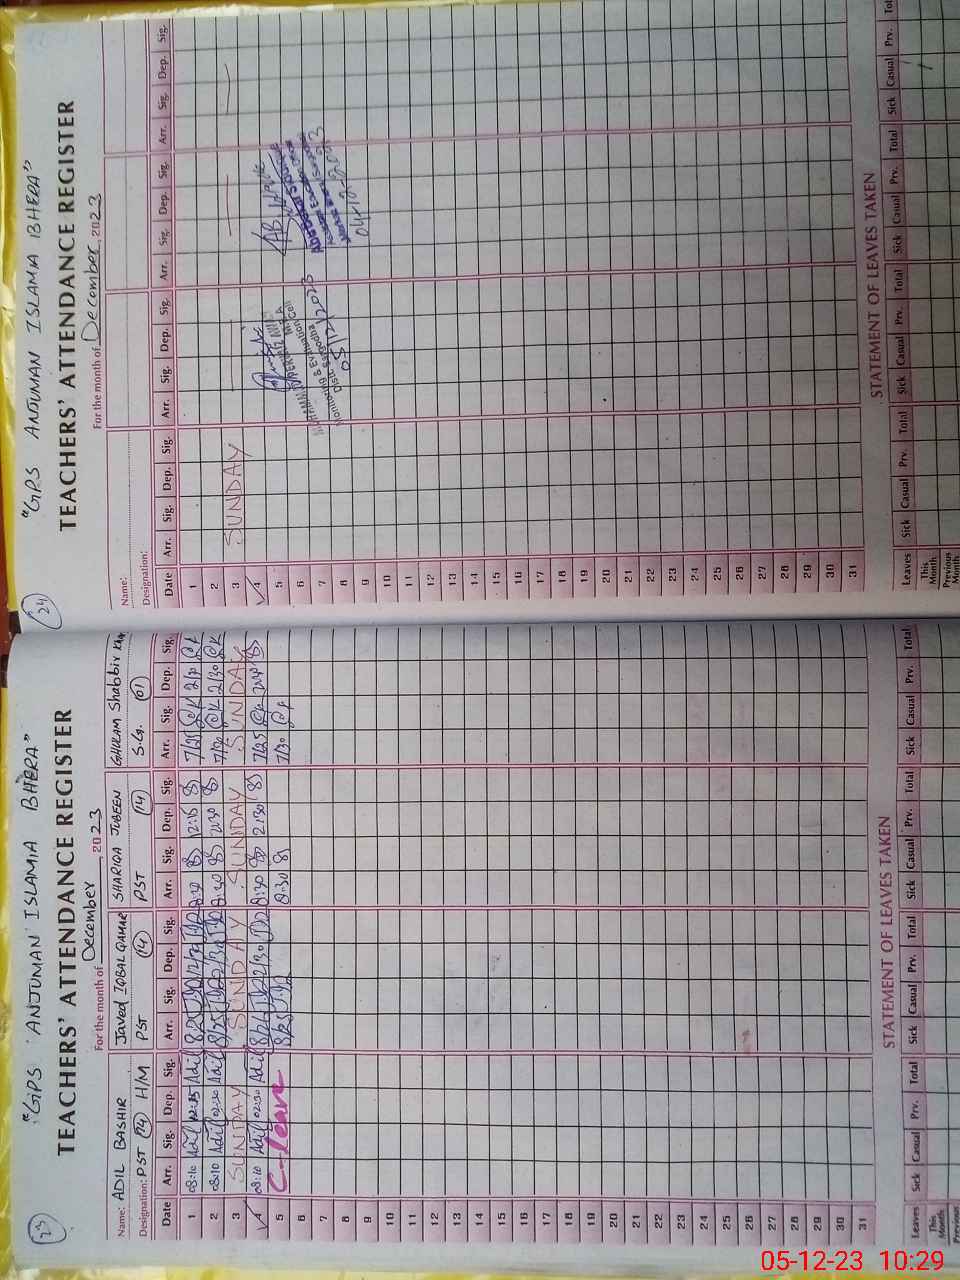 23
"GPS ANJUMAN ISLAMIA BHERA"
TEACHERS' ATTENDANCE REGISTER
For the month of December, 2023
Name: ADIL BASHIR Javed IQBAL QAMAR SHARIQA JUBEEN GHULAM Shabbir
Designation: PST 14 H/M PST 14 PST 14 S.G. 01
Date Arr. Sig. Dep. Sig. Arr. Sig. Dep. Sig. Arr. Sig. Dep. Sig. Arr. Sig. Dep. Sig.
1 08:10 Adil 12:15 Adil 8/25 8:30 12:15 7/25 2/30
2 08:10 Adil 02:30 Adil 8/25 8:30 2:30 7/30 2/30
3 SUNDAY SUNDAY SUNDAY SUNDAY
4 08:10 Adil 02:30 Adil 2/30 8:30 2:30 7/25
5 C-leave 8/25 8:30 7/30
6
7
8
9
10
11
12
13
14
15
16
17
18
19
20
21
22
23
24
25
26
27
28
29
30
31
STATEMENT OF LEAVES TAKEN
Leaves Sick Casual Prv. Total Sick Casual Prv. Total Sick Casual Prv. Total Sick Casual Prv. Total
This Month
Previous
24
"GPS ANJUMAN ISLAMIA BHERA"
TEACHERS' ATTENDANCE REGISTER
For the month of December, 2023
Name:
Designation:
Date Arr. Sig. Dep. Sig. Arr. Sig. Dep. Sig. Arr. Sig. Dep. Sig. Arr. Sig. Dep. Sig.
1
2
3 SUNDAY
4
5
6
7
8
9
10
11
12
13
14
15
16
17
18
19
20
21
22
23
24
25
26
27
28
29
30
31
Monitoring & Evaluation Cell
Distt. Sargodha
05/12/2023
04-12-2023
STATEMENT OF LEAVES TAKEN
Leaves Sick Casual Prv. Total Sick Casual Prv. Total Sick Casual Prv. Total Sick Casual Prv. Tot
This Month
Previous Month
05-12-23 10:29